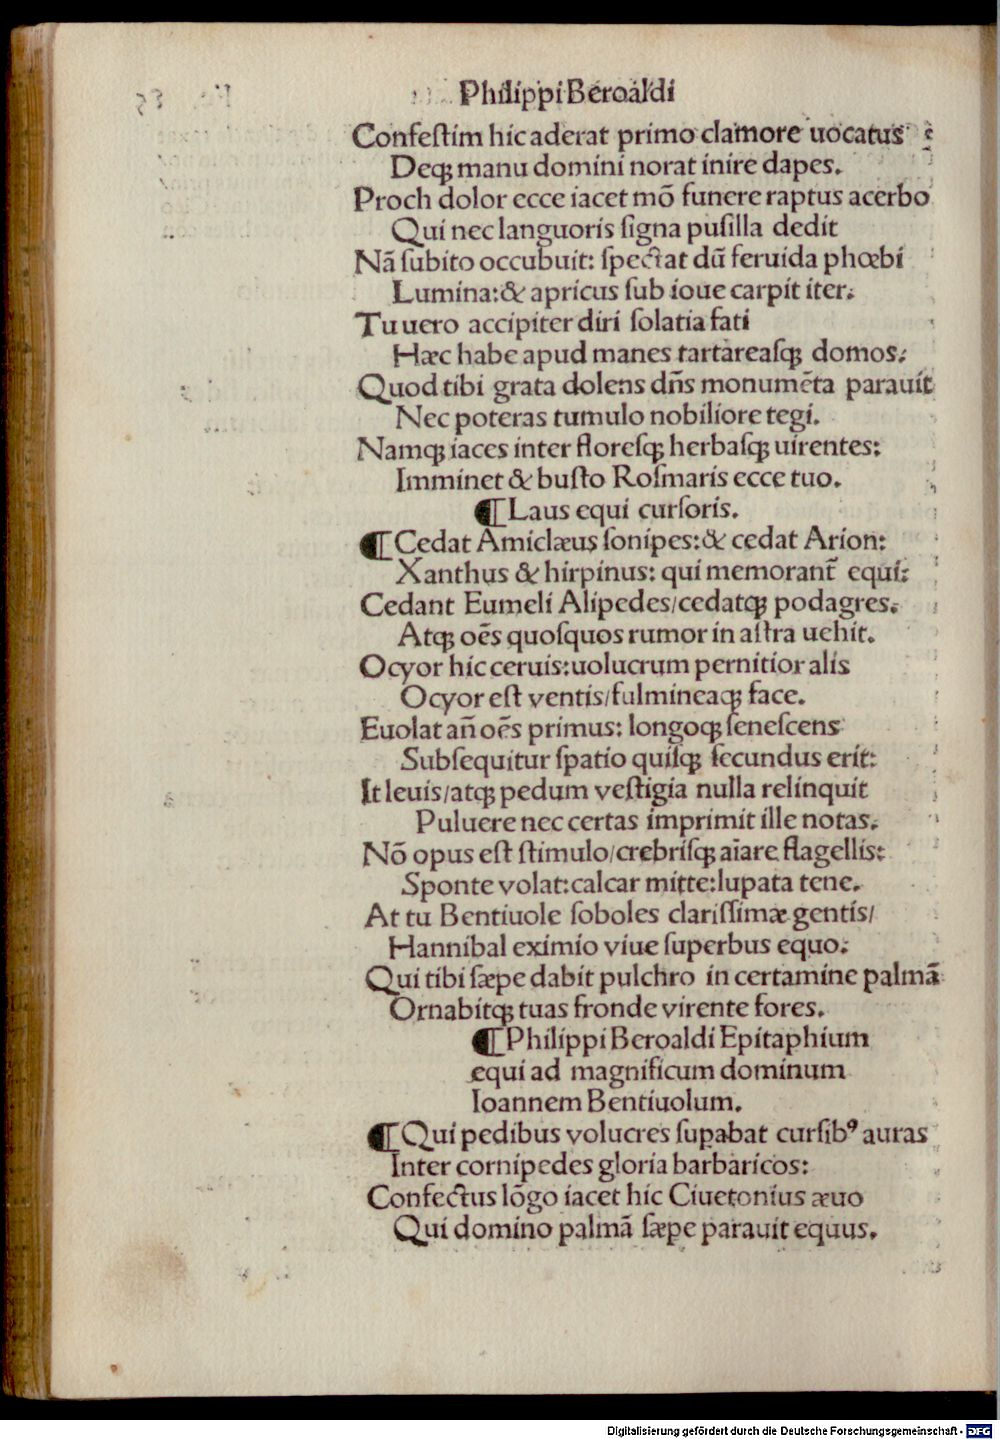 Philippi Beroaldi
Confeſtim hic aderat primo clamore uocatus
Deqꝫ manu domini norat inire dapes.
Proch dolor ecce iacet mō funere raptus acerbo
Qui nec languoris ſigna puſilla dedit
Nā ſubito occubuit: ſpectat dū feruida phœbi
Lumina:& apricus ſub ioue carpit iter.
Tu uero accipiter diri ſolatia fati
Hæc habe apud manes tartareaſqꝫ domos.
Quod tibi grata dolens dn̄s monumēta parauit
Nec poteras tumulo nobiliore tegi.
Namqꝫ iaces inter floreſqꝫ herbaſqꝫ uirentes:
Imminet & buſto Roſmaris ecce tuo.
¶ Laus equi curſoris.
¶ Cedat Amiclæus ſonipes:& cedat Arion:
Xanthus & hirpinus: qui memorant̄ equi:
Cedant Eumeli Alipedes/cedatqꝫ podagres.
Atqꝫ oēs quoſquos rumor in aſtra uehit.
Ocyor hic ceruis:uolucrum pernitior alis
Ocyor eſt ventis/fulmineaqꝫ face.
Euolat an̄ oēs primus: longoqꝫ ſeneſcens
Subſequitur ſpatio quiſqꝫ ſecundus erit:
It leuis/atqꝫ pedum veſtigia nulla relinquit
Puluere nec certas imprimit ille notas.
Nō opus eſt ſtimulo/crebriſqꝫ aīare flagellis:
Sponte volat:calcar mitte:lupata tene.
At tu Bentiuole ſoboles clariſſimæ gentis/
Hannibal eximio viue ſuperbus equo.
Qui tibi ſæpe dabit pulchro in certamine palmā
Ornabitqꝫ tuas fronde virente fores.
¶ Philippi Beroaldi Epitaphium
equi ad magnificum dominum
Ioannem Bentiuolum.
¶ Qui pedibus volucres ſuꝑabat curſibꝰ auras
Inter cornipedes gloria barbaricos:
Confectus lōgo iacet hic Ciuetonius æuo
Qui domino palmā ſæpe parauit equus.
Digitalisierung gefördert durch die Deutsche Forschungsgemeinschaft - DFG